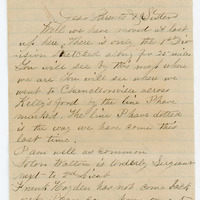 Dear Parents & Sister
Well we have moved at last
up here. There is only the 1st Div
ision for 25 miles
You will see by this map where
we are. You will see when we went
to Chancellorsville across
Kelly's ford by the line I have
marked. The line I have dotted
is the way we have come this
last time.
I am well as common
Walton is Orderly Sergeant
Frank has not come back